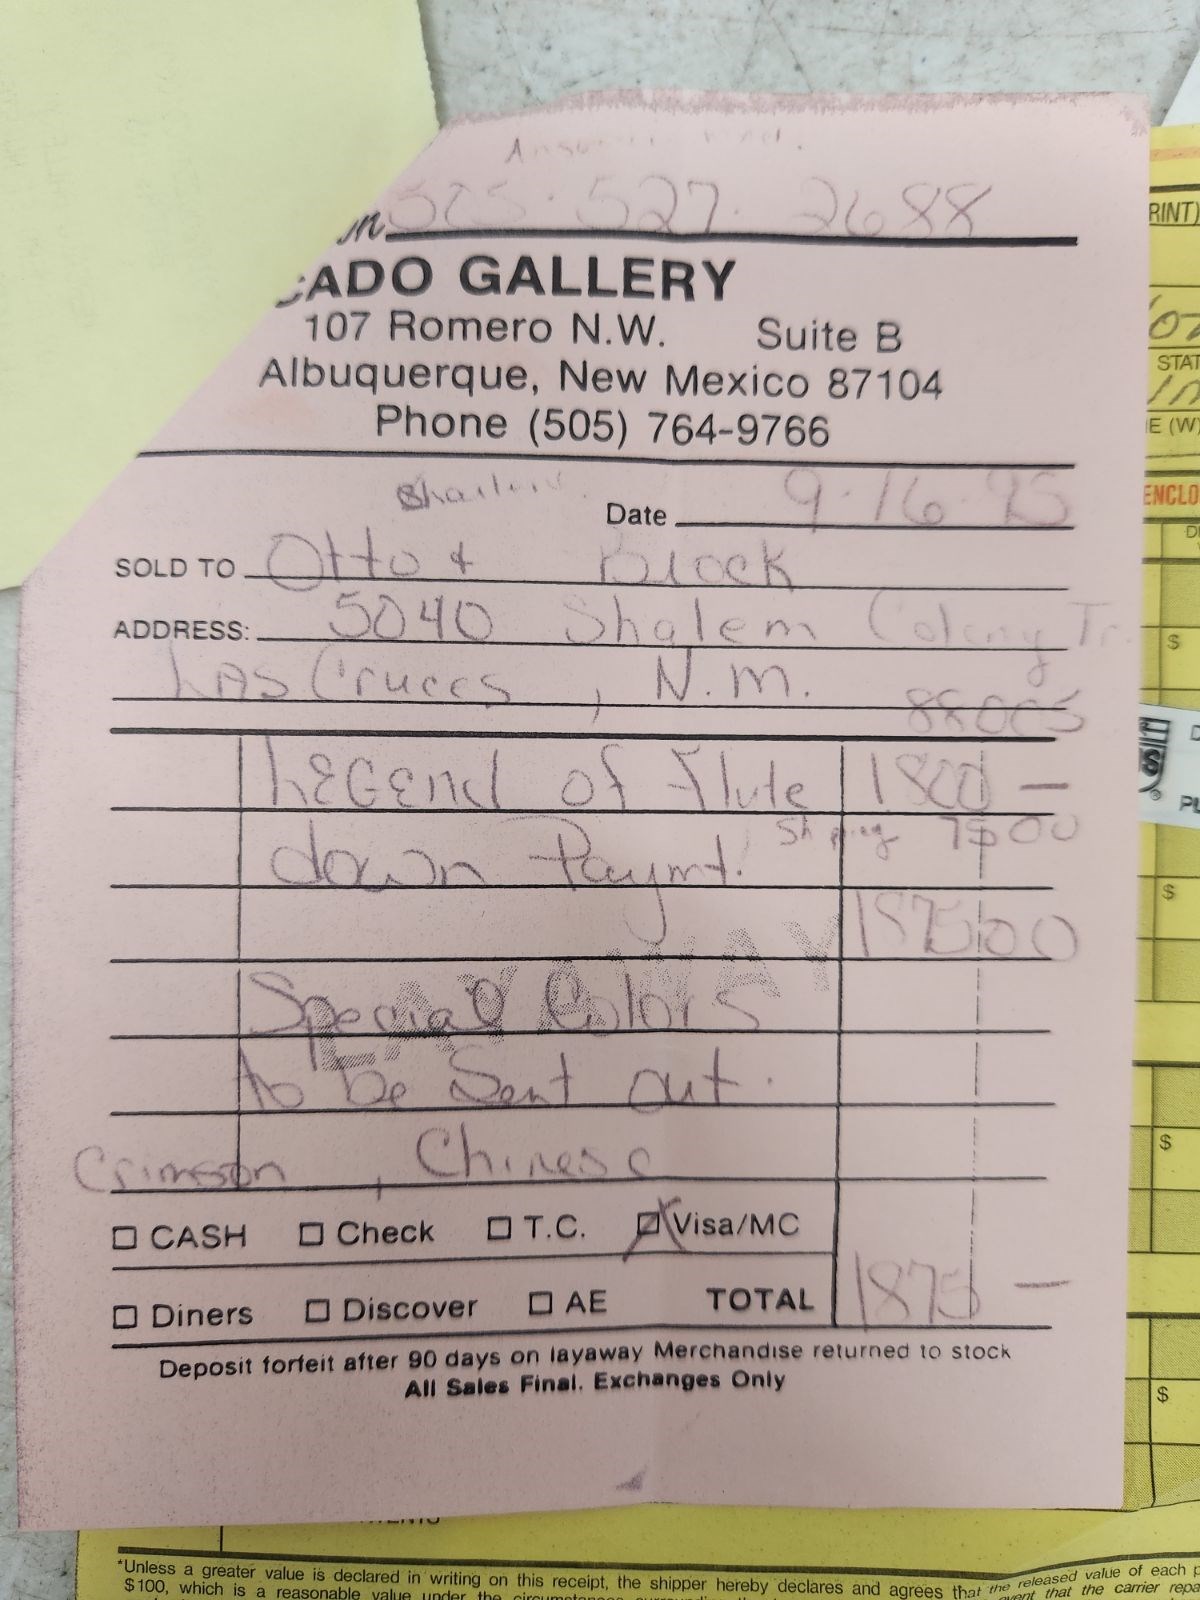 505-527-2688
CADO GALLERY
107 Romero N.W. Suite B
Albuquerque, New Mexico 87104
Phone (505) 764-9766
Date 9-16-95
SOLD TO Otto & Block
ADDRESS: 5040 Shalem Colony Tr.
Las Cruces, N.M.
88005
LEGEnd of Flute 1800 —
Shipping 75 00
down Paymt.
1875 00
LAYAWAY
Special Colors
to be Sent out.
Crimson, Chinese
CASH Check T.C. Visa/MC
Diners Discover AE TOTAL 1875 —
Deposit forfeit after 90 days on layaway Merchandise returned to stock
All Sales Final. Exchanges Only
RINT)
STAT
E (W)
ENCLO
$
$
$
$
*Unless a greater value is declared in writing on this receipt, the shipper hereby declares and agrees that the released value of each p
$100, which is a reasonable value under the circumstances
event that the carrier repa